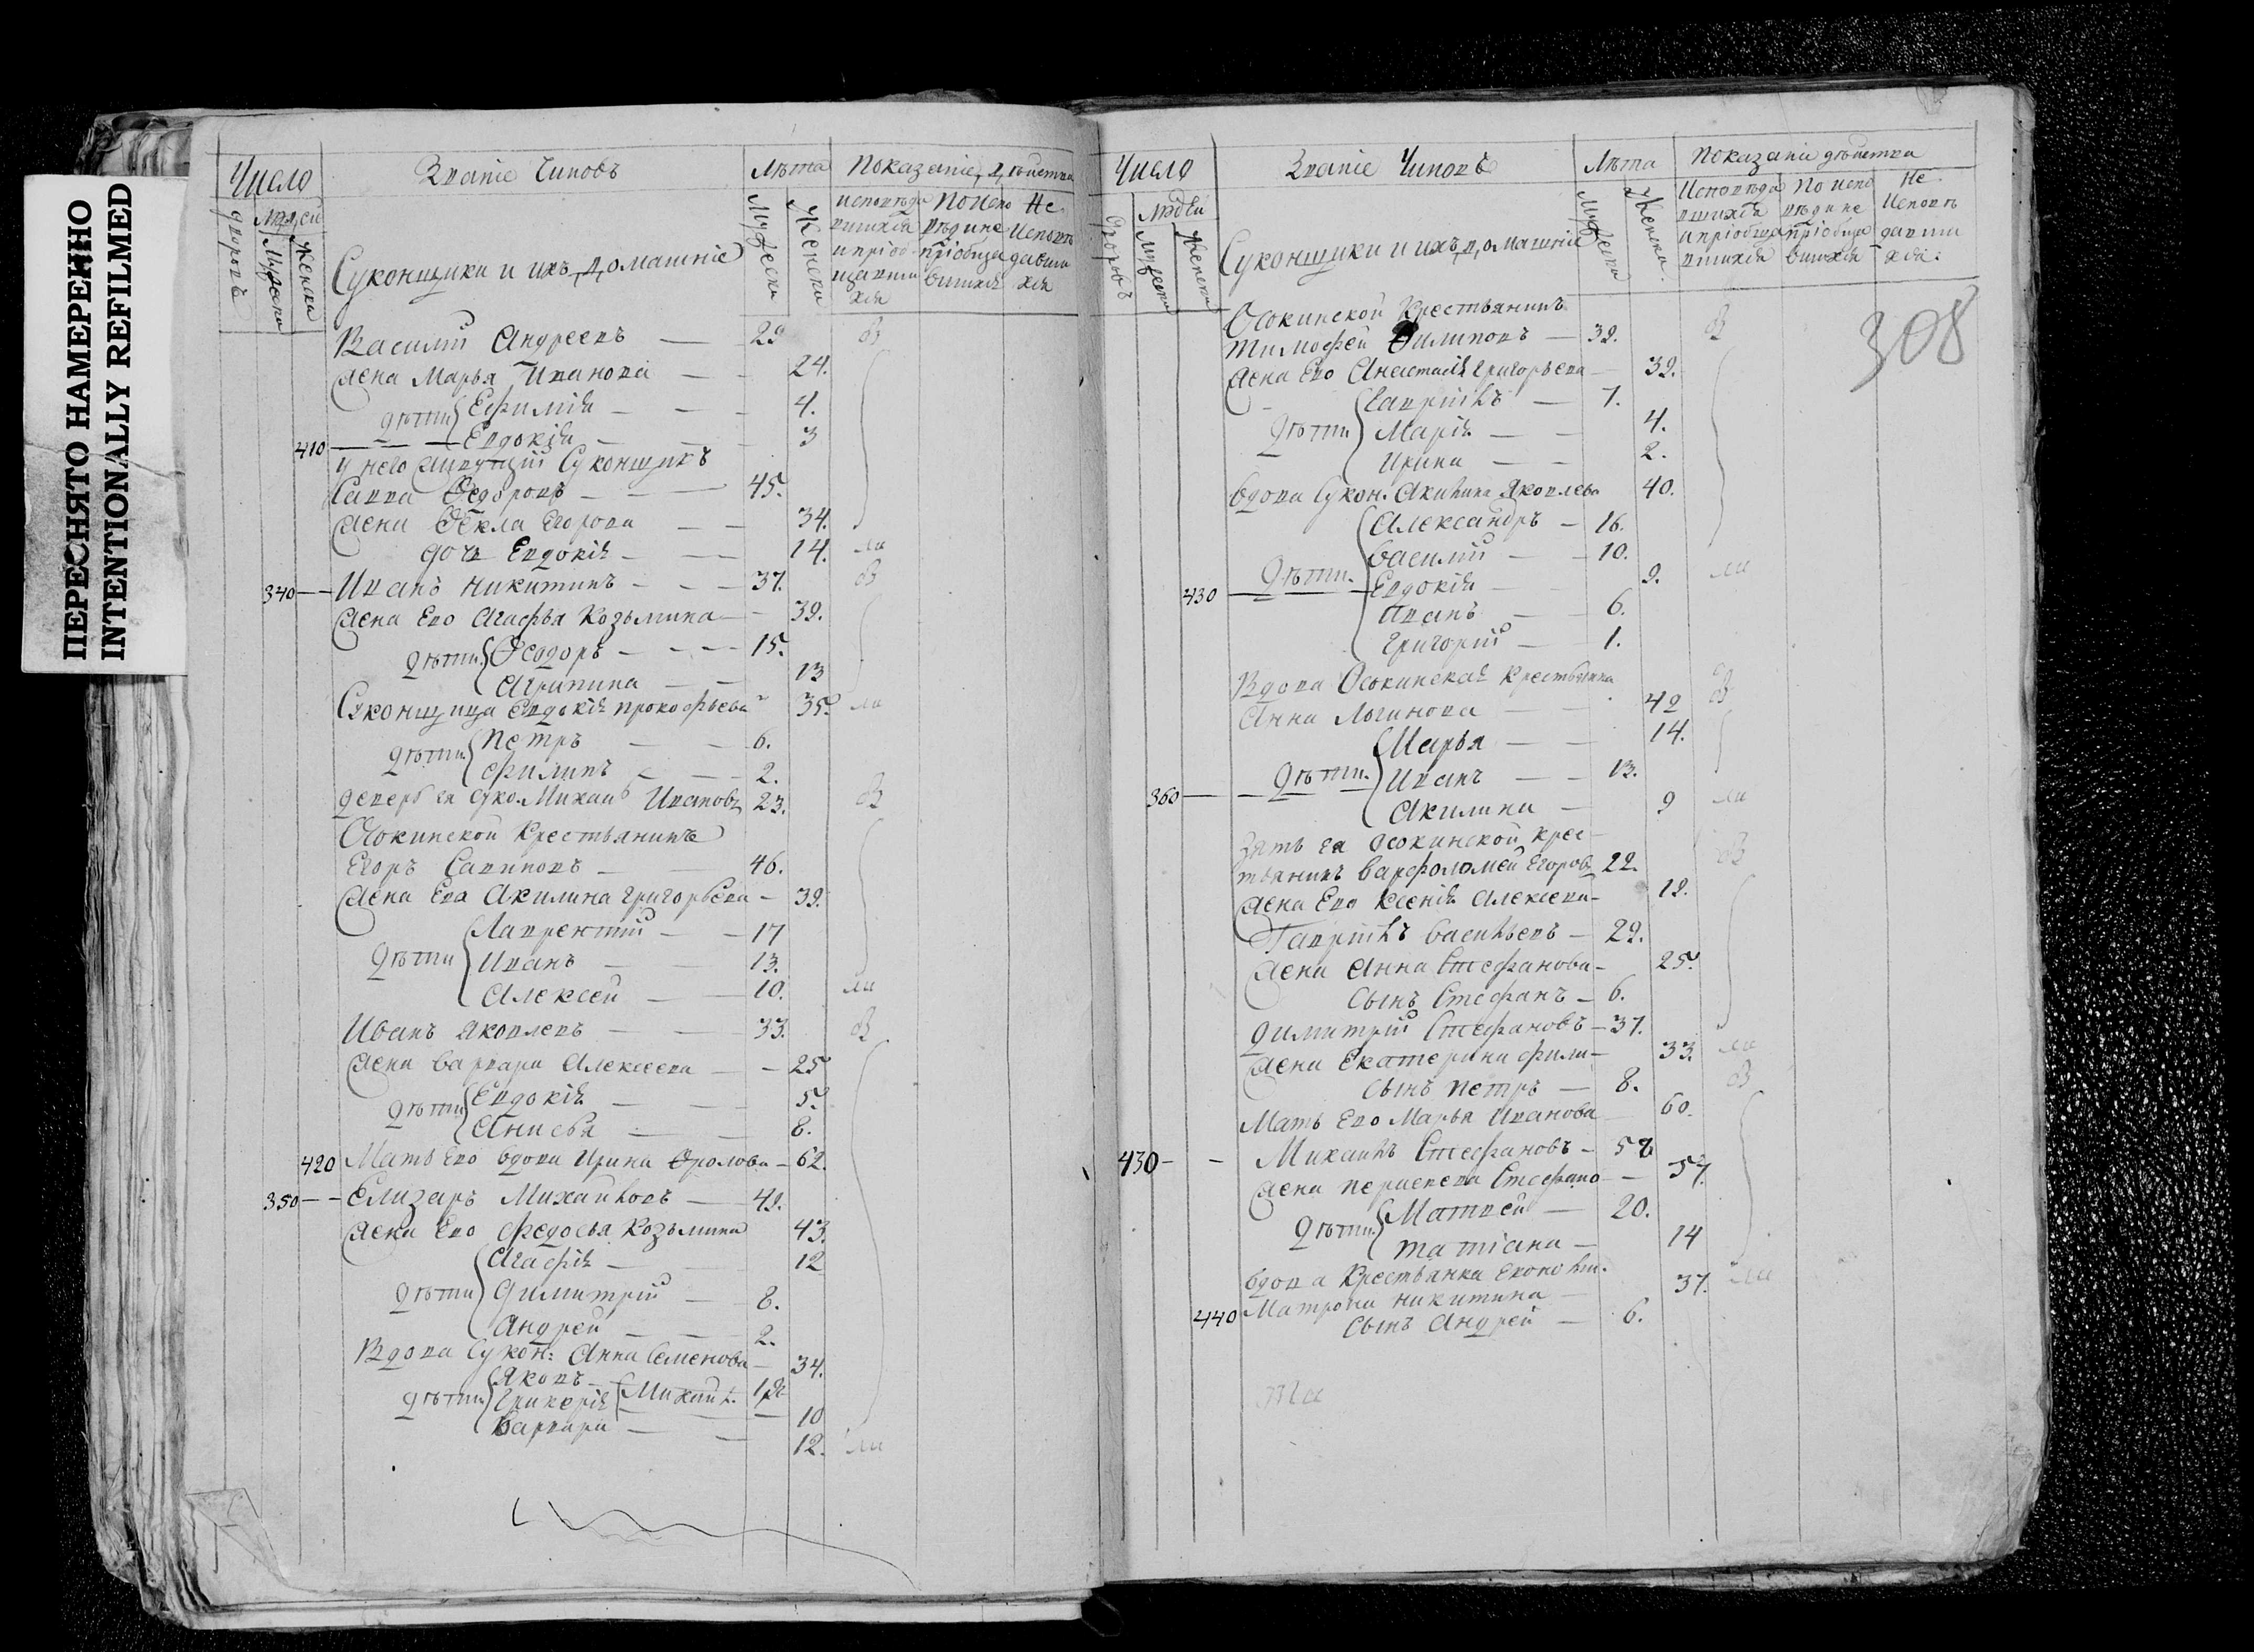 ПЕРЕСНЯТО НАМЕРЕННО
INTENTIONALLY REFILMED
Число
Званіе Чиновъ
Лѣта
Показаніе дѣйства
дворовъ
людей
Мужеска
Женска
Суконщики и ихъ домашніе
Мужеска
Женска
исповѣда
вшихся
и пріоб
щавши
хся
По испо
вѣди не
пріобща
вшихся
Не
исповѣ
давши
хся
Василій Андреевъ — 29
Жена Марья Иванова — — 24.
дѣти Ефимія — — 4.
410 Евдокія — — 3
у него живущій Суконщикъ
Савва Ѳедоровъ — — 45.
Жена Ѳекла Егорова — — 34.
дочь Евдокія — — 14.
340 — — Иванъ Никитинъ — — 37.
Жена Ево Агафья Козьмина — 39.
дѣти Ѳеодоръ — — — 15.
Агрипина — — 13
Суконщица Евдокія Прокофьева 35.
дѣти Петръ — — 6.
Филипъ — — 2.
деверь ея суко. Михаил Ивановъ 23.
Осокинской Крестьянинъ
Егоръ Савиновъ — 46.
Жена Ева Акилина Григорьева — 39.
дѣти Лаврентій — — 17
Иванъ — — 13.
Алексей — — 10.
Иванъ Яковлевъ — — 33.
Жена Варвара Алексеева — — 25
дѣти Евдокія — — 5.
Анисья — — 8.
420 Мать Ево вдова Ирина Фролова — 62.
350 — — Елизаръ Михайловъ — 49.
Жена Ево Федосья Козьмина 43.
дѣти Агафія — — 12
Димитрій — 8.
Андрей — — 2.
Вдова Сукон: Анна Семенова — 34.
дѣти Яковъ —
Гликерія Михаил. — 10
Варвара — — 12.
Число
Званіе Чиновъ
Лѣта
Показаніе дѣйства
308
дворовъ
людей
Мужеска
Женска
Суконщики и ихъ домашніе
Мужеска
Женска
Исповѣда
вшихся
и пріобща
вшихся
По испо
вѣди не
пріобща
вшихся
Не
Исповѣ
давши
хся:
Осокинской Крестьянинъ
Тимофей Филиповъ — 39.
Жена Ево Анастасія Григорьева — 39.
Гавріилъ — 7.
дѣти Марія — — 4.
Ирина — — 2.
Вдова Сукон. Акилина Яковлева 40.
Александръ — 16.
Василій — — 10.
430 дѣти. Евдокія — — 9.
Иванъ — — 6.
Григорій — — 1.
Вдова Осокинская Крестьянка
Анна Логинова — — 42
Марья — — 14.
360 — — дѣти. Иванъ — — 13.
Акилина — 9
Зять ея Осокинской крес-
тьянинъ Варфоломей Егоровъ 22.
Жена Ево Ксенія Алексеева — 19.
Гавріилъ Васильевъ — 29.
Жена Анна Стефанова — 25.
Сынъ Стефанъ — 6.
Димитрій Стефановъ — 37.
Жена Екатерина Фили — 33.
Сынъ Петръ — 8.
Мать Ево Марья Иванова — 60.
430 — — Михаилъ Стефановъ —
Жена Стефано — — 57.
дѣти Матвей — 20.
Татіана — 14
Вдова Крестьянка
Матрона Никитина — 37.
440 Сынъ Андрей — 6.